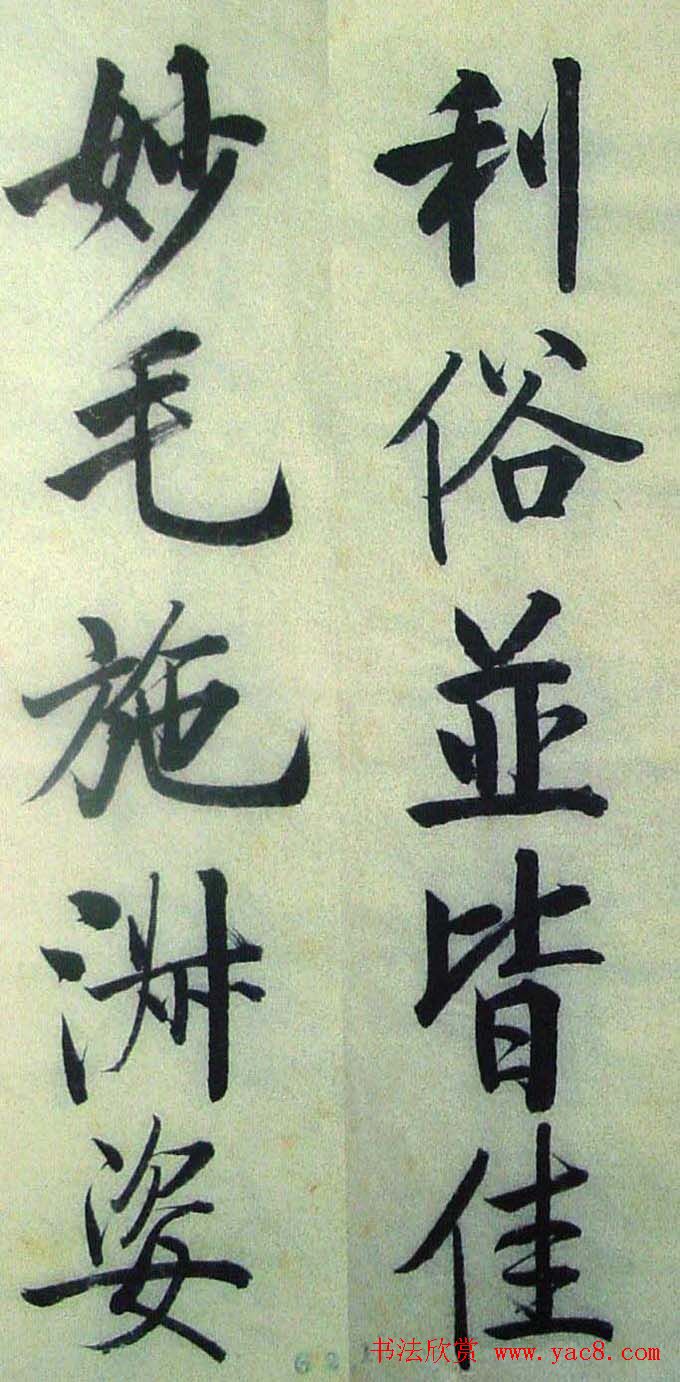 利俗並皆佳
妙毛施淑姿
书法欣赏 www.yac8.com